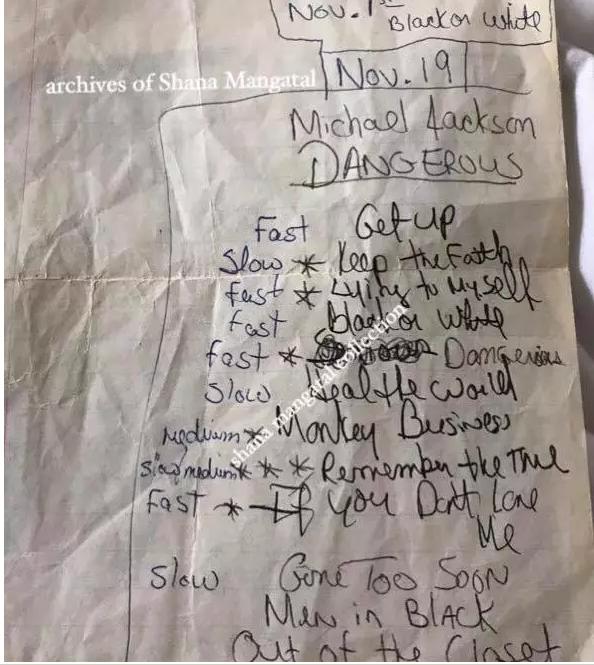 Nov. 1st
Black or White
Nov. 19
archives of Shana Mangatal
Michael Jackson
DANGEROUS
Fast Get up
Slow * Keep the Faith
fast * Lying to Myself
fast Black or White
fast * Dangerous
Slow Heal the World
Medium * Monkey Business
Slow medium * * * Remember the Time
Fast * If You Don't Love
Me
Slow Gone Too Soon
Men in BLACK
Out of the Closet
shana_mangatalcollection